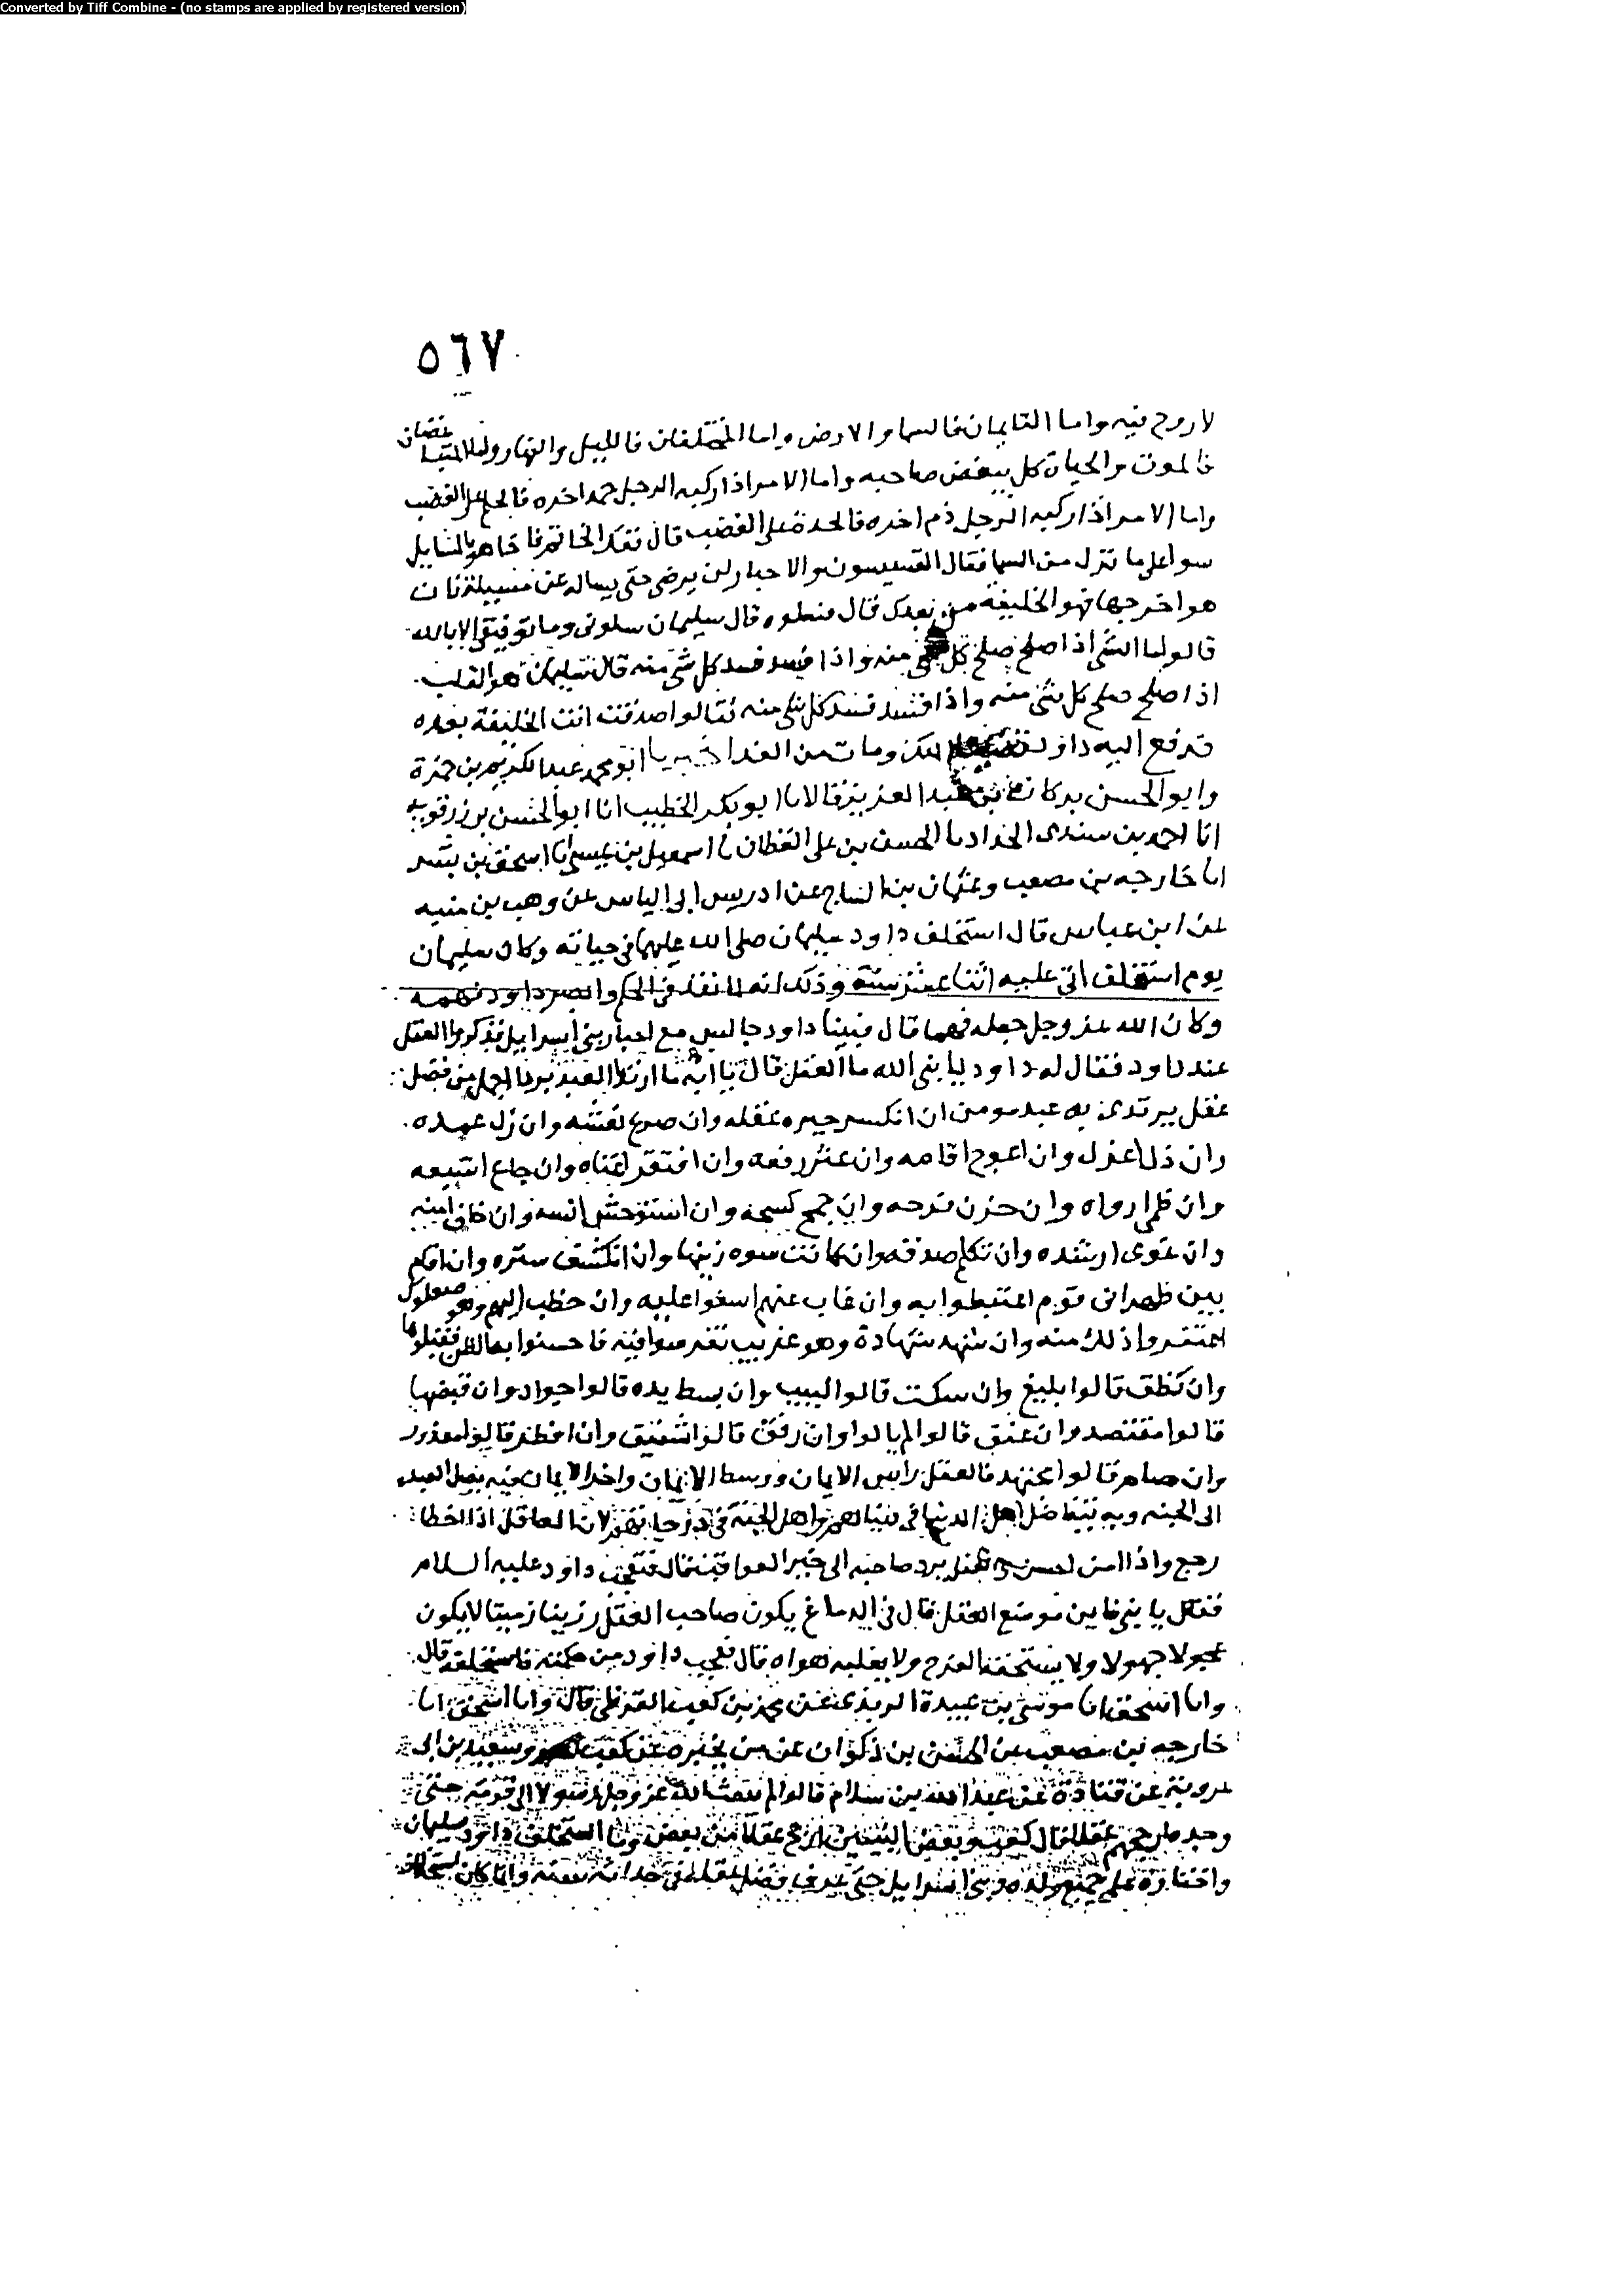 Converted by Tiff Combine - (no stamps are applied by registered version)
٥٦٧
لا روح فيه واما القايمان فالسما والارض واما المختلفان فالليل والنهار واما المتباغضان
فالموت والحياة كل يبغض صاحبه واما الامر اذا ركبه الرجل حمد اخره فالحلم على الغضب
واما الامر اذا ركبه الرجل ذم اخره فالحدة على الغضب قال ففك الخاتم فاذا هو بالمسايل
سوا على ما نزل من السما فقال القسيسون والاحبار لن نرضى حتى يساله عن مسيلة فان
هو اخرجها فهو الخليفة من بعدك قال فسلوه قال سليمان سلوني وما توفيقي الا بالله
قالوا ما الشي اذا صلح صلح كل شي منه واذا فسد فسد كل شي منه قال سليمان هو القلب
اذا صلح صلح كل شي منه واذا فسد فسد كل شي منه فقالوا صدقت انت الخليفة بعده
فدفع اليه داود الملك ومات من الغد اخبرنا ابو محمد عبد الكريم بن حمزة
وابو الحسن بركات بن عبد العزيز قالا نا ابو بكر الخطيب انا ابو الحسن بن رزقويه
انا احمد بن سندى الحداد نا الحسن بن علي القطان نا اسمعيل بن عيسى انا اسحق بن بشر
انا خارجه بن مصعب وعثمان بن الساج عن ادريس ابى الياس عن وهب بن منبه
عن ابن عباس قال استخلف داود سليمان صلى الله عليهما في حياته وكان سليمان
يوم استخلف اتى عليه اثنا عشر سنة وذلك انه لما نفذ في الحكم وابصر داود فهمه
وكان الله عز وجل جعله فهما قال فبينا داود جالس مع احبار بني اسرايل فذكروا العقل
عند داود فقال له داود يا بني الله ما العقل قال يا ابه ما ارتدا العبد بردا اجمل من فضل
عقل يرتدى به عبد مومن ان انكسر جبره عقله وان صرع نعشه وان زل عمده
وان ذل اعزه وان اعوج اقامه وان عثر رفعه وان افتقر اغناه وان جاع اشبعه
وان ظمى ارواه وان حزن فرحه وان جمح كسحه وان استوحش انسه وان خاف امنه
وان غوى ارشده وان تكلم صدقه وان كانت سوه زينها وان انكشف ستره وان اقام
بين ظهرانى قوم اغتبطوا به وان غاب عنهم اسفوا عليه وان خطب اليهم وهو صعلوك
اغتفروا ذلك منه وان شهد شهادة وهو غريب تفرسوا فيه فاحسنوا به الظن فقبلوها
وان نطق قالوا بليغ وان سكت قالوا لبيب وان بسط يده قالوا جواد وان قبضها
قالوا مقتصد وان عنق قالوا لم يالوا وان رفق قالوا شفيق وان افطر قالوا معذور
وان صام قالوا مجتهد فالعقل راس الايمان ووسط الايمان واخر الايمان به يصل العبد
الى الجنه وبه يتفاضل اهل الدنيا في دنياهم واهل الجنة في درجاتهم لان العاقل اذا اخطا
رجع واذا اسن احسن عقل يرد صاحبه الى خير العواقب قال فتعجب داود عليه السلام
فقال يا بني فاين موضع العقل قال في الدماغ يكون صاحب العقل رزينا زميتا لا يكون
عجولا جهولا ولا يستخفه الفرح ولا يغلبه هواه قال فعجب داود من حكمته فاستخلفه قال
وانا اسحق انا موسى بن عبيدة الربذي عن محمد بن كعب القرظي قال وانا اسحق انا
خارجه بن مصعب عن الحسن بن ذكوان عن من يخبره عن كعب وسعيد بن ابى
عروبة عن قتادة عن عبد الله بن سلام قالوا لم يبعث الله عز وجل رسولا الى قومه حتى
وجده ارجحهم عقلا قال كعب وبعض النبيين ارجح عقلا من بعض وما استخلف داود سليمان
واختاره على جميع ولده وبني اسرايل حتى عرف فضل عقله في حداثة سنه وانما كان استخلاف